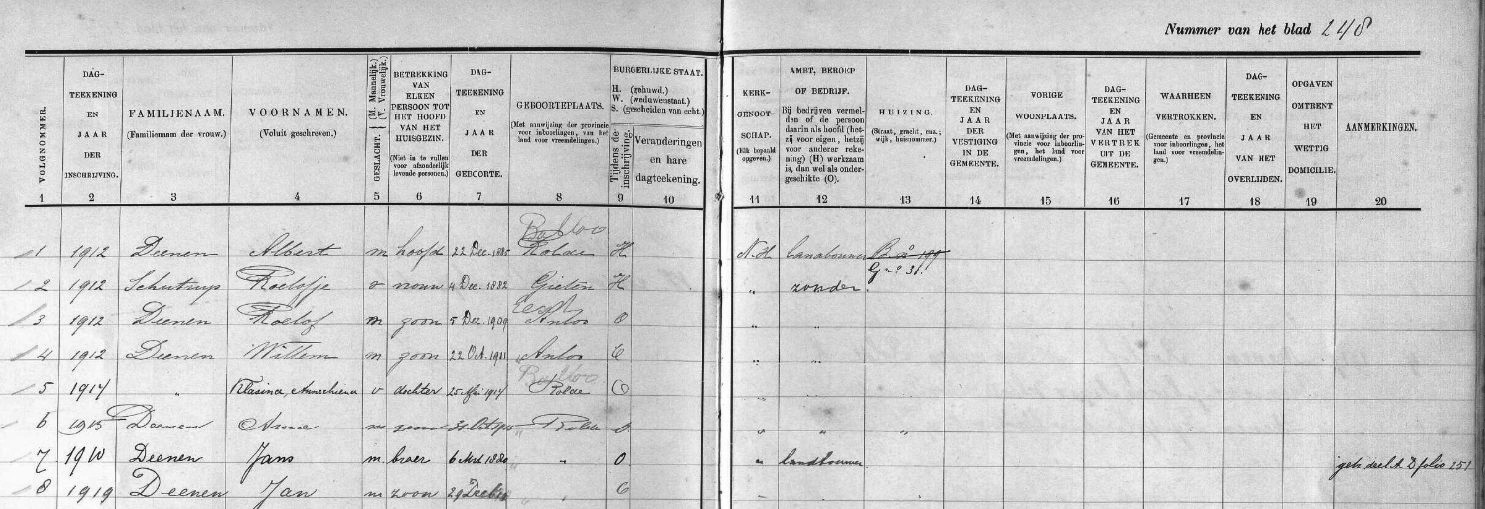 Nummer van het blad 248
VOLGNOMMER.
DAG-
TEEKENING
EN
JAAR
DER
INSCHRIJVING.
FAMILIENAAM.
(Familienaam der vrouw.)
VOORNAMEN.
(Voluit geschreven.)
GESLACHT. (M. Mannelijk.) (V. Vrouwelijk.)
BETREKKING
VAN
ELKEN
PERSOON TOT
HET HOOFD
VAN HET
HUISGEZIN.
(Niet in te vullen
voor afzonderlijk
levende personen.)
DAG-
TEEKENING
EN
JAAR
DER
GEBOORTE.
GEBOORTEPLAATS.
(Met aanwijzing der provincie
voor inboorlingen, van het
land voor vreemdelingen.)
BURGERLIJKE STAAT.
H. (gehuwd.)
W. (weduwenstaat.)
S. (gescheiden van echt.)
Tijdens de
inschrijving.
Veranderingen
en hare
dagteekening.
KERK-
GENOOT-
SCHAP.
(Elk bepaald
opgeven.)
AMBT, BEROEP
OF BEDRIJF.
Bij bedrijven vermel-
den of de persoon
daarin als hoofd (het-
zij voor eigen, hetzij
voor anderer reke-
ning) (H) werkzaam
is, dan wel als onder-
geschikte (O).
HUIZING.
(Straat, gracht, enz.;
wijk, huisnummer.)
DAG-
TEEKENING
EN
JAAR
DER
VESTIGING
IN DE
GEMEENTE.
VORIGE
WOONPLAATS.
(Met aanwijzing der pro-
vincie voor inboorlin-
gen, het land voor
vreemdelingen.)
DAG-
TEEKENING
EN
JAAR
VAN HET
VERTREK
UIT DE
GEMEENTE.
WAARHEEN
VERTROKKEN.
(Gemeente en provincie
voor inboorlingen, het
land voor vreemdelin-
gen.)
DAG-
TEEKENING
EN
JAAR
VAN HET
OVERLIJDEN.
OPGAVEN
OMTRENT
HET
WETTIG
DOMICILIE.
AANMERKINGEN.
1 2 3 4 5 6 7 8 9 10 11 12 13 14 15 16 17 18 19 20
Balloo
1 1912 Deenen Albert m hoofd 22 Dec. 1885 Rolde H N.H landbouwer
G n° 31.
2 1912 Schutrup Roelofje v vrouw 4 Dec. 1882 Gieten H " zonder
Eext
3 1912 Deenen Roelof m zoon 5 Dec. 1909 Anlos O " "
4 1912 Deenen Willem m zoon 22 Oct. 1911 Anlos O " "
Balloo
5 1914 " Klasina Annechiena v dochter 25 Mei 1914 Rolde O " "
6 1915 Deenen m zoon 31 Oct Rolde O " " "
7 1910 Deenen Jans m. broer 6 Mrt 1880 " O " landbouwer geb deel A D folio 251
8 1919 Deenen Jan m zoon 29 " O